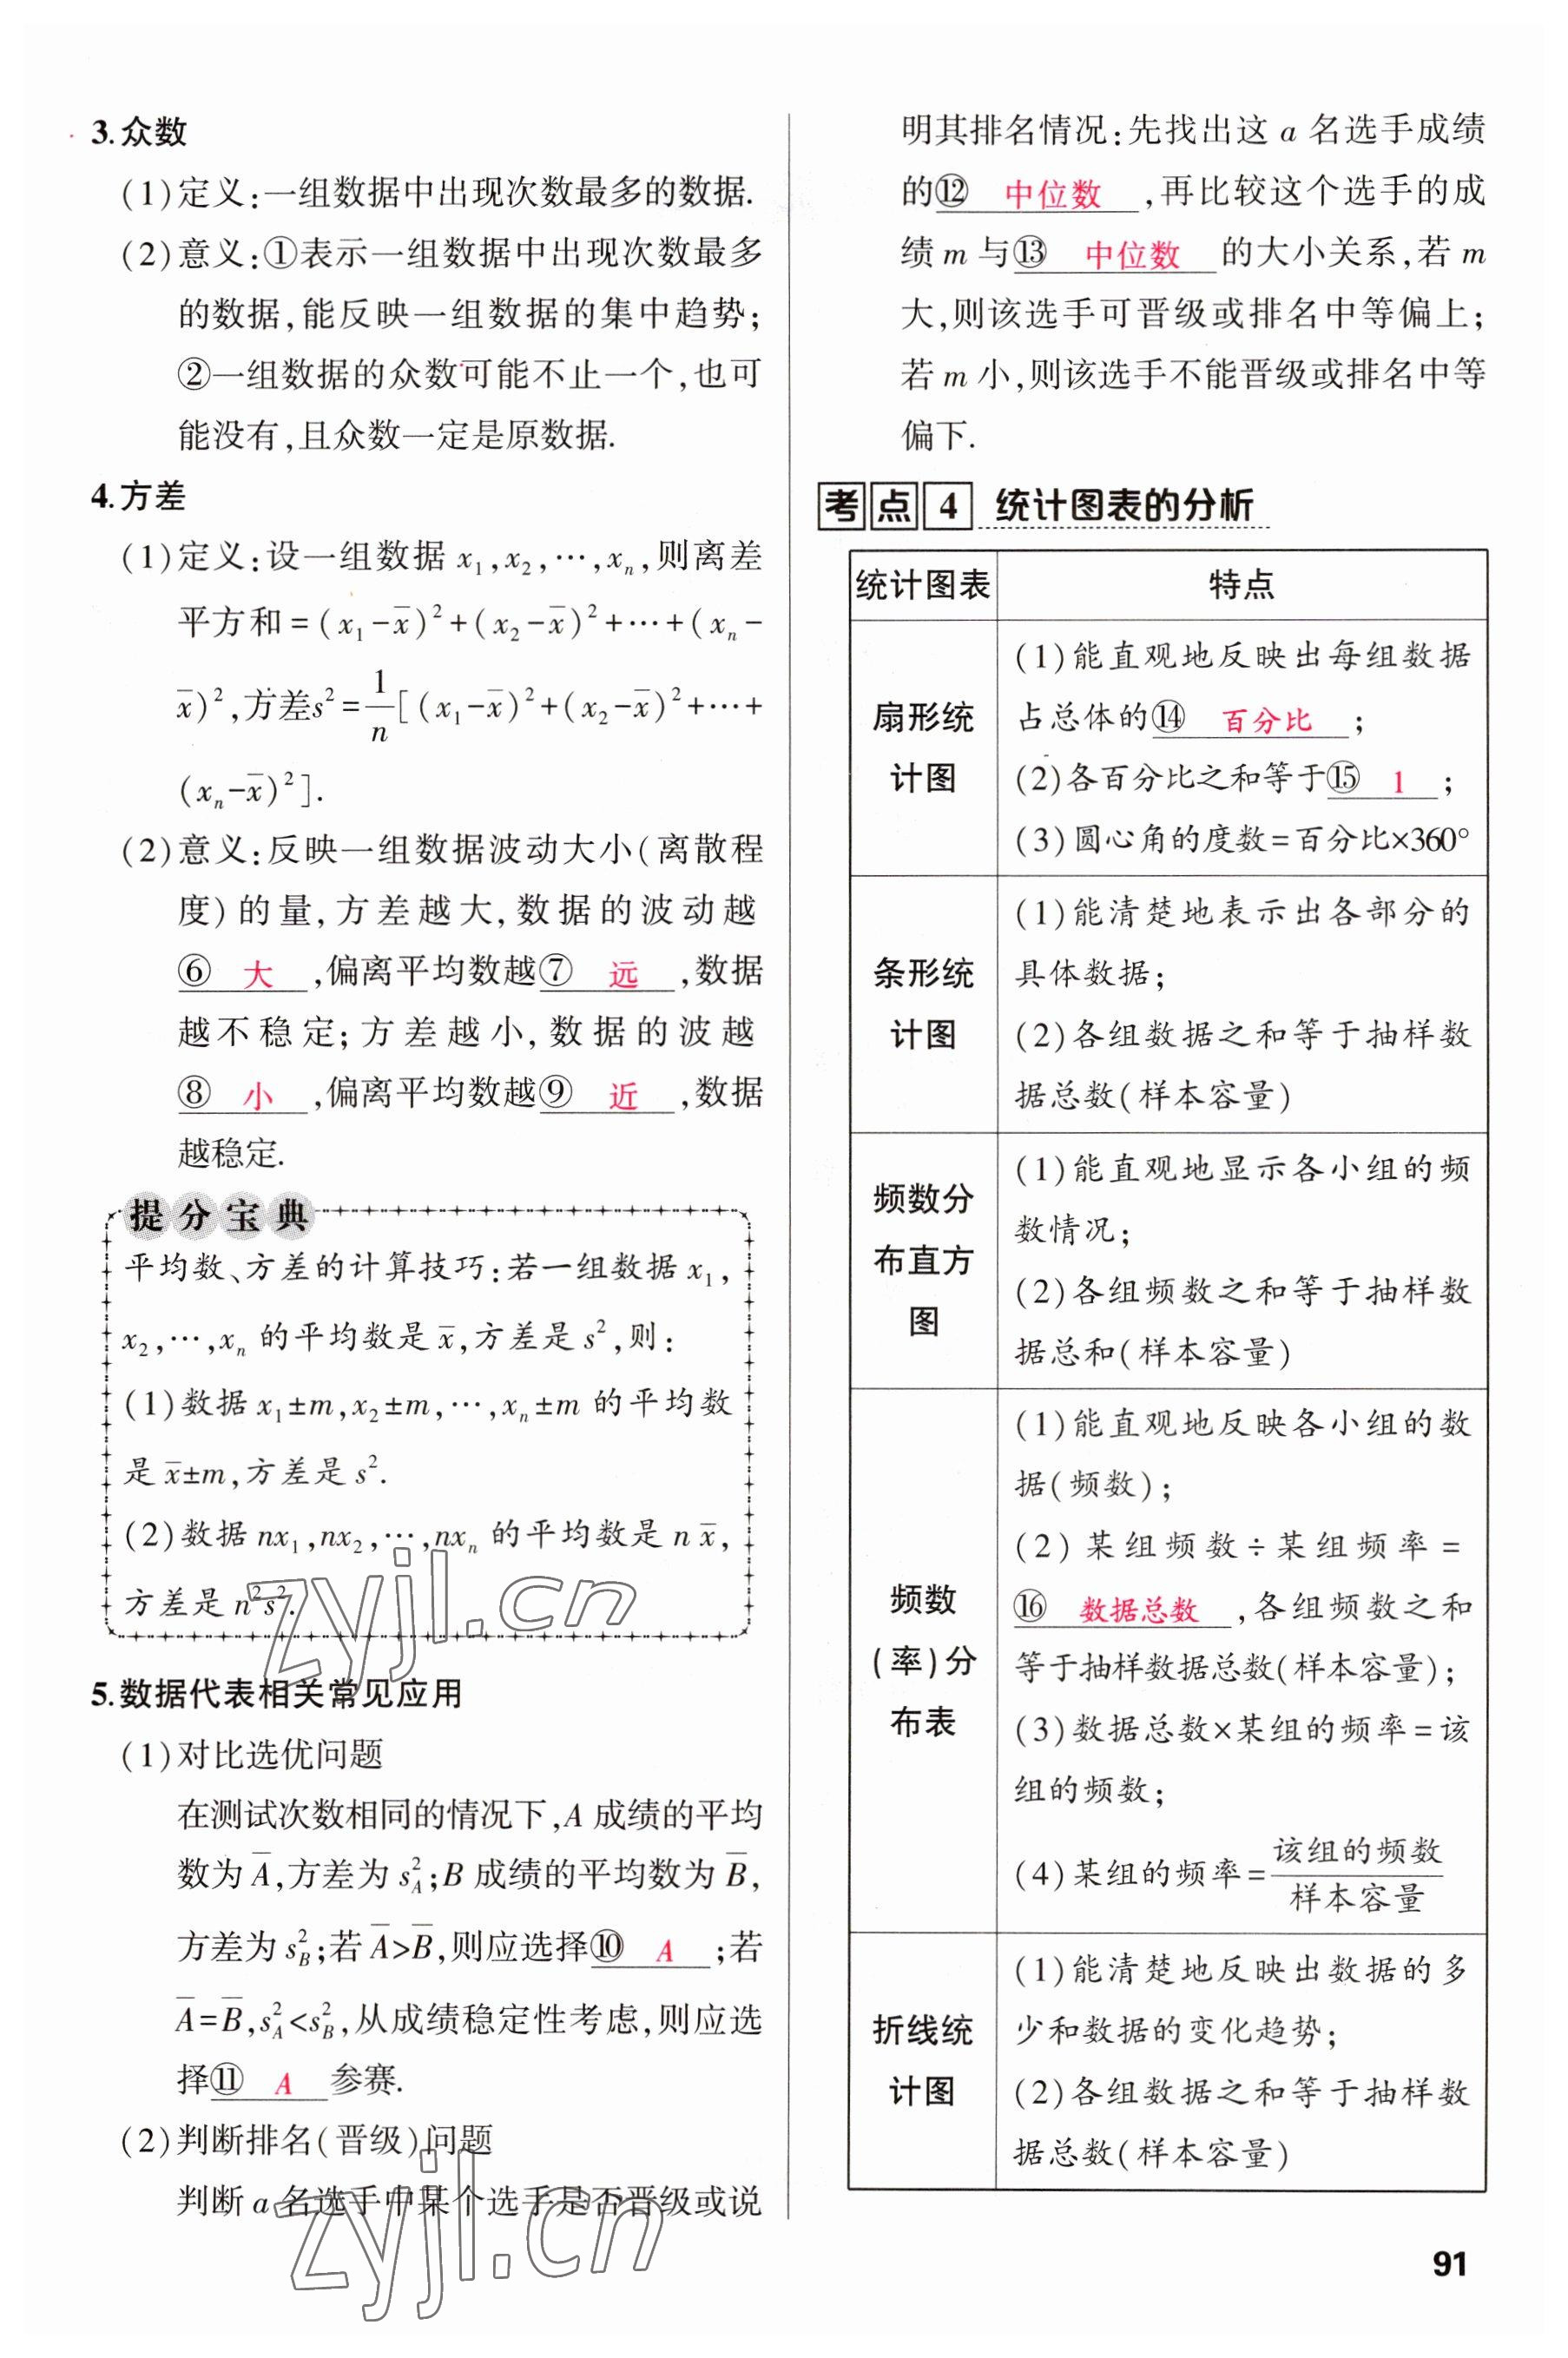 3.众数
(1)定义:一组数据中出现次数最多的数据.
(2)意义:①表示一组数据中出现次数最多
的数据,能反映一组数据的集中趋势;
②一组数据的众数可能不止一个,也可
能没有,且众数一定是原数据.
4.方差
(1)定义:设一组数据 x₁,x₂,…,xₙ,则离差
平方和=(x₁-x̄)²+(x₂-x̄)²+…+(xₙ-
x̄)²,方差s²=1/n[(x₁-x̄)²+(x₂-x̄)²+…+
(xₙ-x̄)²].
(2)意义:反映一组数据波动大小(离散程
度)的量,方差越大,数据的波动越
⑥ 大 ,偏离平均数越⑦ 远 ,数据
越不稳定;方差越小,数据的波越
⑧ 小 ,偏离平均数越⑨ 近 ,数据
越稳定.
提分宝典
平均数、方差的计算技巧:若一组数据 x₁,
x₂,…,xₙ 的平均数是 x̄,方差是 s²,则:
(1)数据 x₁±m,x₂±m,…,xₙ±m 的平均数
是 x̄±m,方差是 s².
(2)数据 nx₁,nx₂,…,nxₙ 的平均数是 n x̄,
方差是 n²s².
zyjl.cn
5.数据代表相关常见应用
(1)对比选优问题
在测试次数相同的情况下,A 成绩的平均
数为 A̅,方差为 s²_A;B 成绩的平均数为 B̅,
方差为 s²_B;若 A̅>B̅,则应选择⑩ A ;若
A̅=B̅,s²_A<s²_B,从成绩稳定性考虑,则应选
择⑪ A 参赛.
(2)判断排名(晋级)问题
判断 a 名选手中某个选手是否晋级或说
zyjl.cn
明其排名情况:先找出这 a 名选手成绩
的⑫ 中位数 ,再比较这个选手的成
绩 m 与⑬ 中位数 的大小关系,若 m
大,则该选手可晋级或排名中等偏上;
若 m 小,则该选手不能晋级或排名中等
偏下.
考点4 统计图表的分析
统计图表 特点
扇形统
计图
(1)能直观地反映出每组数据
占总体的⑭ 百分比 ;
(2)各百分比之和等于⑮ 1 ;
(3)圆心角的度数=百分比×360°
条形统
计图
(1)能清楚地表示出各部分的
具体数据;
(2)各组数据之和等于抽样数
据总数(样本容量)
频数分
布直方
图
(1)能直观地显示各小组的频
数情况;
(2)各组频数之和等于抽样数
据总和(样本容量)
频数
(率)分
布表
(1)能直观地反映各小组的数
据(频数);
(2)某组频数÷某组频率=
⑯ 数据总数 ,各组频数之和
等于抽样数据总数(样本容量);
(3)数据总数×某组的频率=该
组的频数;
(4)某组的频率=该组的频数/样本容量
折线统
计图
(1)能清楚地反映出数据的多
少和数据的变化趋势;
(2)各组数据之和等于抽样数
据总数(样本容量)
91